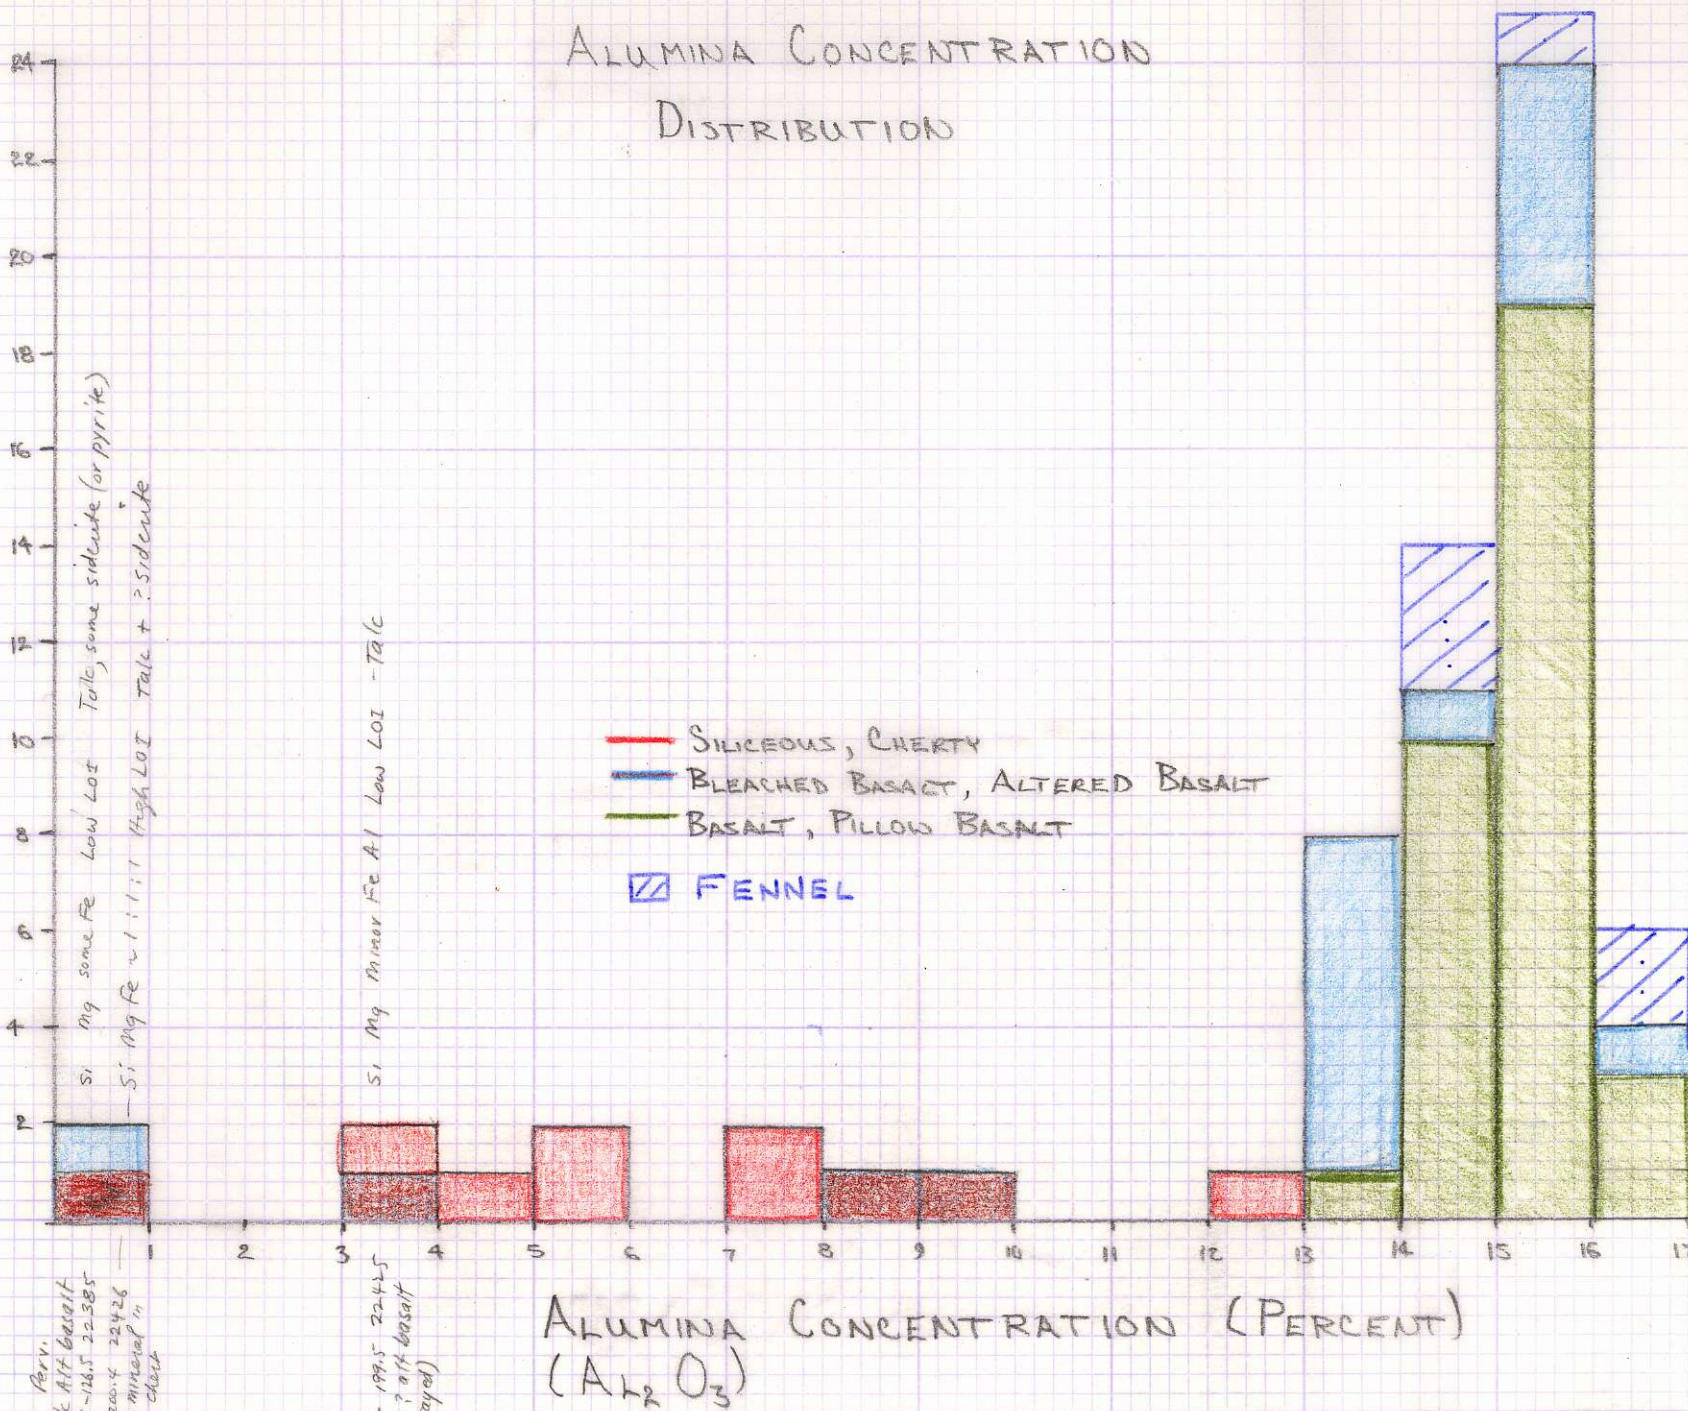 ALUMINA CONCENTRATION
DISTRIBUTION
24
22
20
18
16
14
12
10
8
6
4
2
Si Mg some Fe Low LOI Talc, some siderite (or pyrite)
Si Mg Fe ~ 1:1:1 High LOI Talc + ? siderite
Si Mg minor Fe Al Low LOI - Talc
SILICEOUS, CHERTY
BLEACHED BASALT, ALTERED BASALT
BASALT, PILLOW BASALT
FENNEL
1 2 3 4 5 6 7 8 9 10 11 12 13 14 15 16 17
Perv.
Alt basalt
-126.5 22385
200.4 22426
mineral in
chert
- 199.5 22425
? alt basalt
ALUMINA CONCENTRATION (PERCENT)
(AL2 O3)